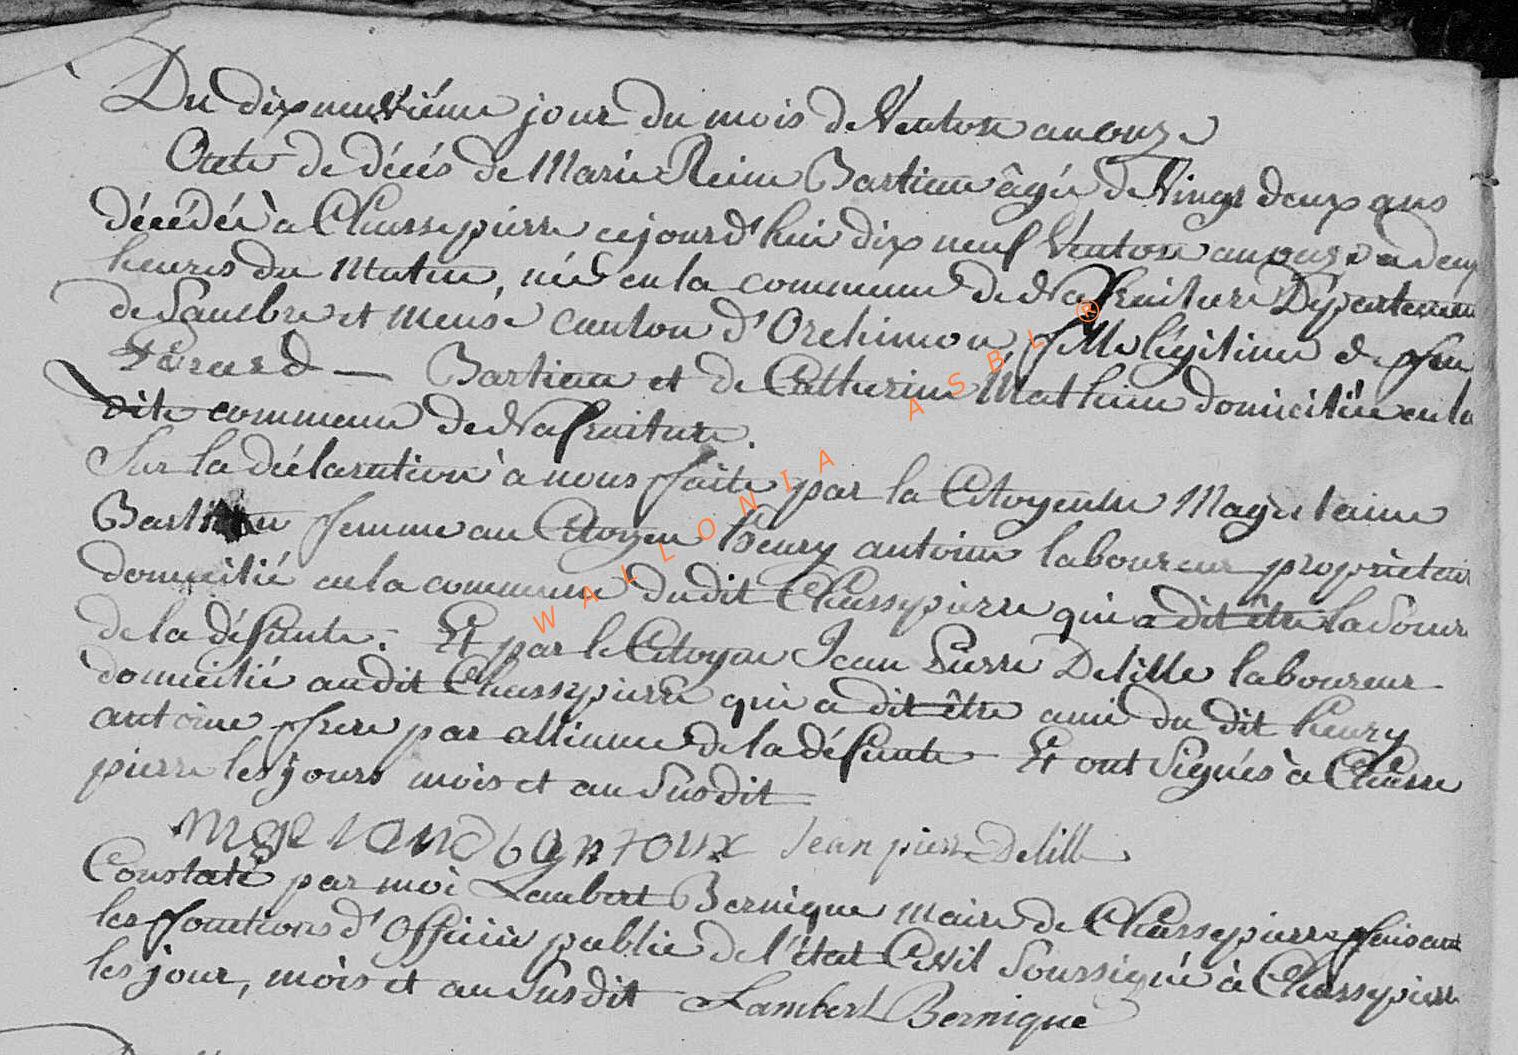 Du dixneuviéme jour du mois de Ventose an onze
Acte de décés de Marie Reine Bartieau âgée de Vingt deux ans
décédée à Chassepierre cejourd'hui dix neuf Ventose an onze a deux
heures du Matin, née en la commune de Nafraiture Département
de Sambre et Meuse canton d'Orchimon, fille légitime de feu
Gerard — Bartieau et de Catherine Mathieu domiciliée en la
dite commune de Nafraiture.
Sur la déclaration à nous faite par la Citoyenne Magdelaine
femme au Citoyen henry antoine laboureur propriétaire
domicilié en la commune dudit Chassepierre qui a dit être la Soeur
de la défunte. Et par le Citoyen Jean Pierre Delille laboureur
domicilié audit Chassepierre qui a dit être ami du dit henry
antoine frere par alliance de la défunte Et ont Signés à Chasse
pierre les jours mois et an Susdit
Jean pierre Delille
Constaté par moi Lambert Bernique maire de Chassepierre faisant
les fonctions d'Officier public de l'état Civil Soussigné à Chassepierre
les jour, mois et an Susdit Lambert Bernique
WALLONIA ASBL ®